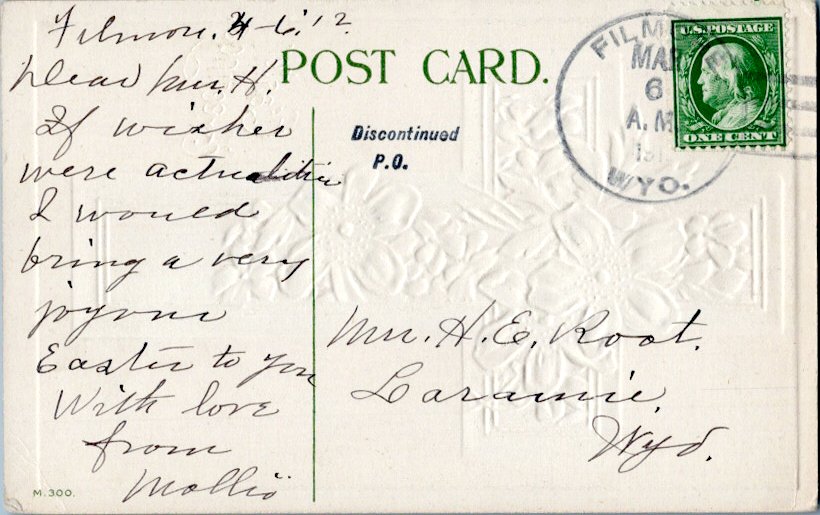 Filmore. 4-6, '12.
Dear Mrs. H.
If wishes
were actualities
I would
bring a very
joyous
Easter to you
With love
from
Mollie
M.300.
POST CARD.
Discontinued
P.O.
Mrs. H. E. Root.
Laramie,
Wyo.
MAR
6
A.M.
WYO.
U.S. POSTAGE
ONE CENT